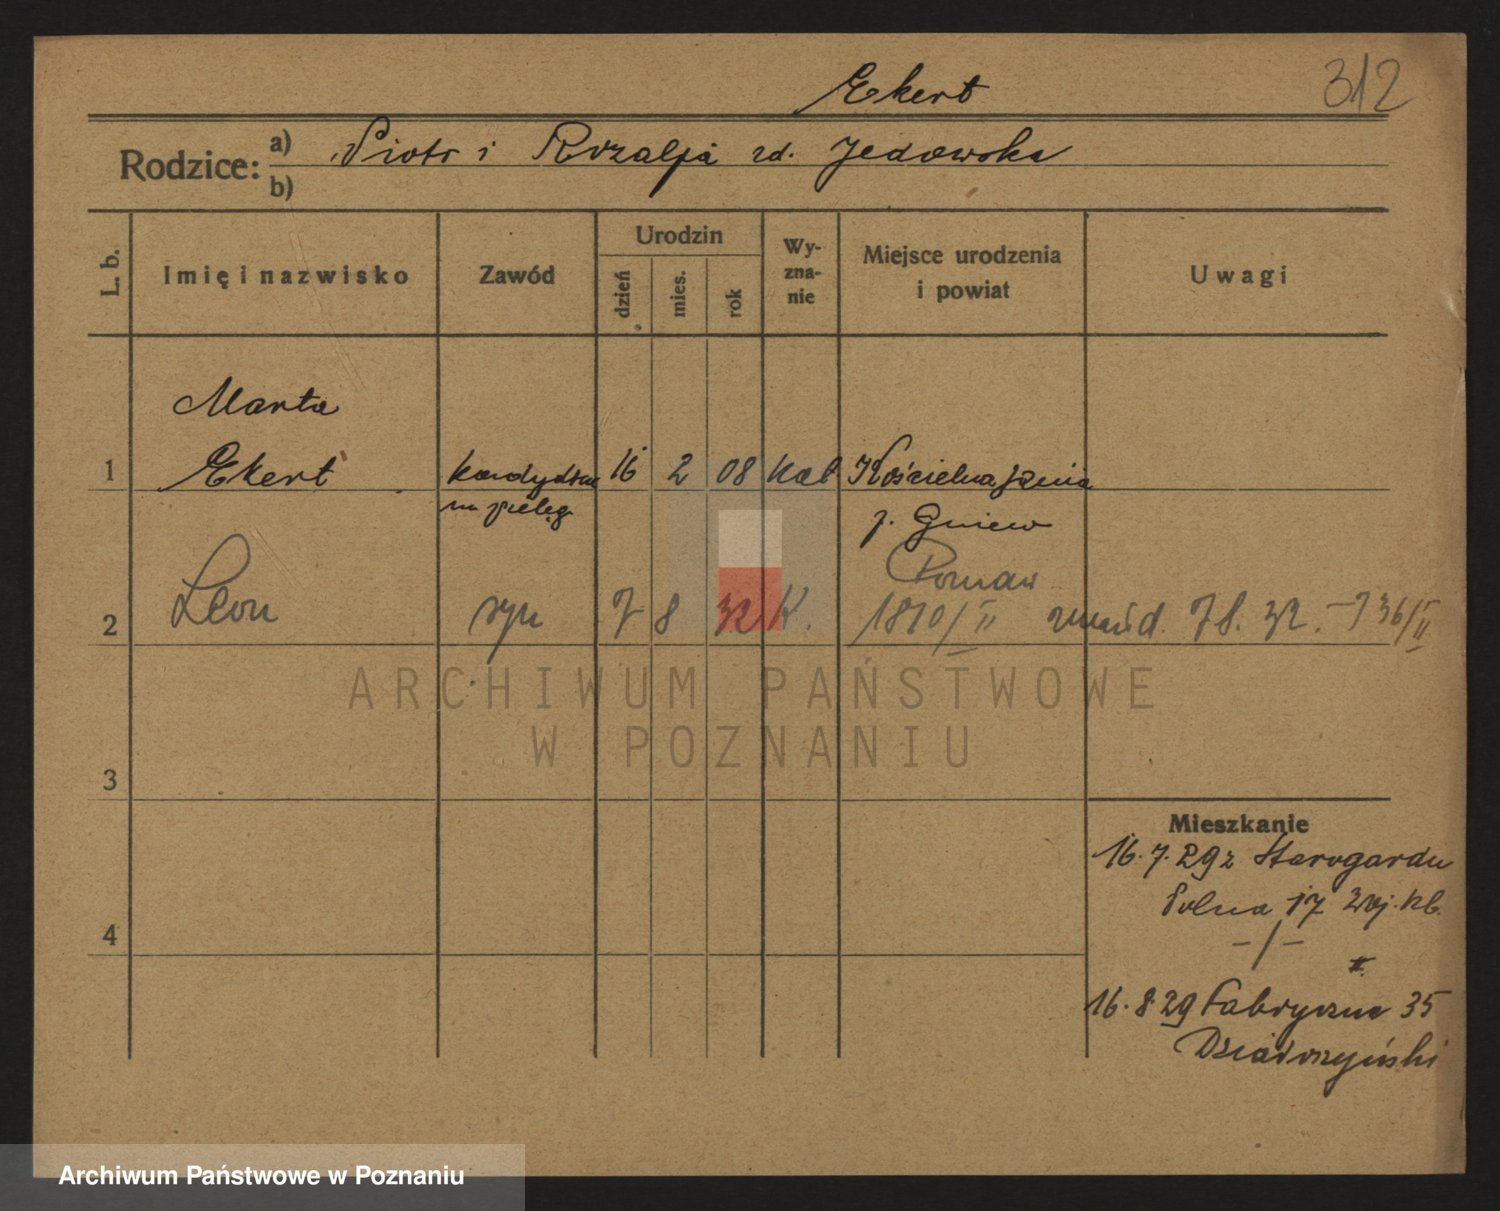 Ekert 312
Rodzice: a) Piotr i Rozalja zd. Jedowska
b)
L. b. Imię i nazwisko Zawód Urodzin dzień mies. rok Wy-zna-nie Miejsce urodzenia i powiat Uwagi
Marta
1 Ekert kandydtka 16 2 08 kat Kościelna Jania
na pielęg p. Gniew
Poznań
2 Leon syn 7 8 32 K. 1810/II 7 8. 32. 36/II
ARCHIWUM PAŃSTWOWE
W POZNANIU
3
Mieszkanie
16.7.29 z Starogardu
Polna 17
4
-/-
II
16.8.29 Fabryczna 35
Archiwum Państwowe w Poznaniu